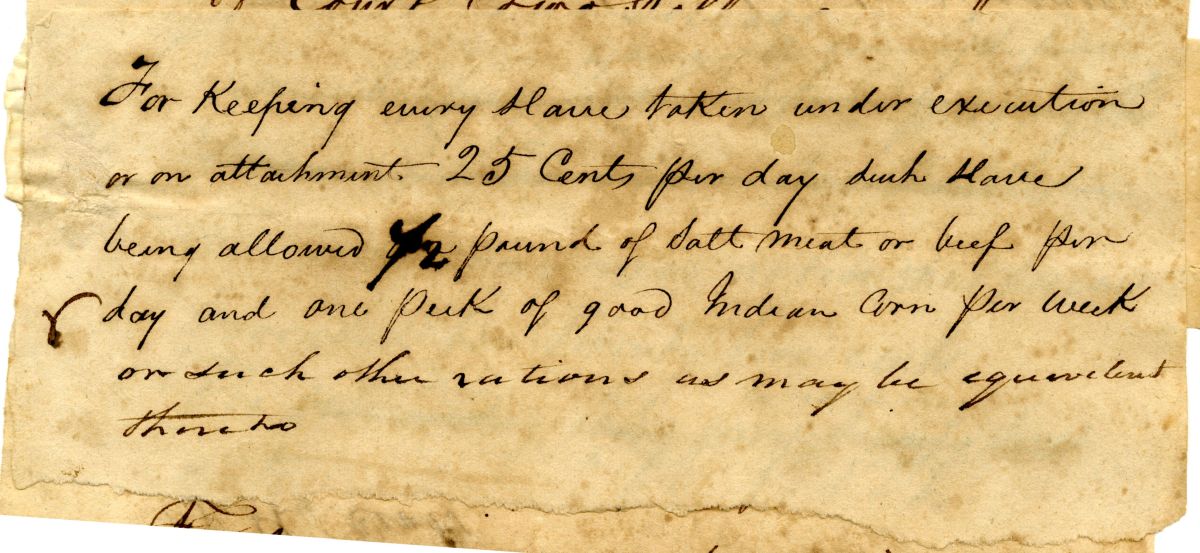 of Court
For Keeping every slave taken under execution
or on attachment 25 Cents per day such slave
being allowed 1/2 pound of Salt meat or beef per
day and one peck of good Indian Corn per week
or such other rations as may be equivelent
thereto